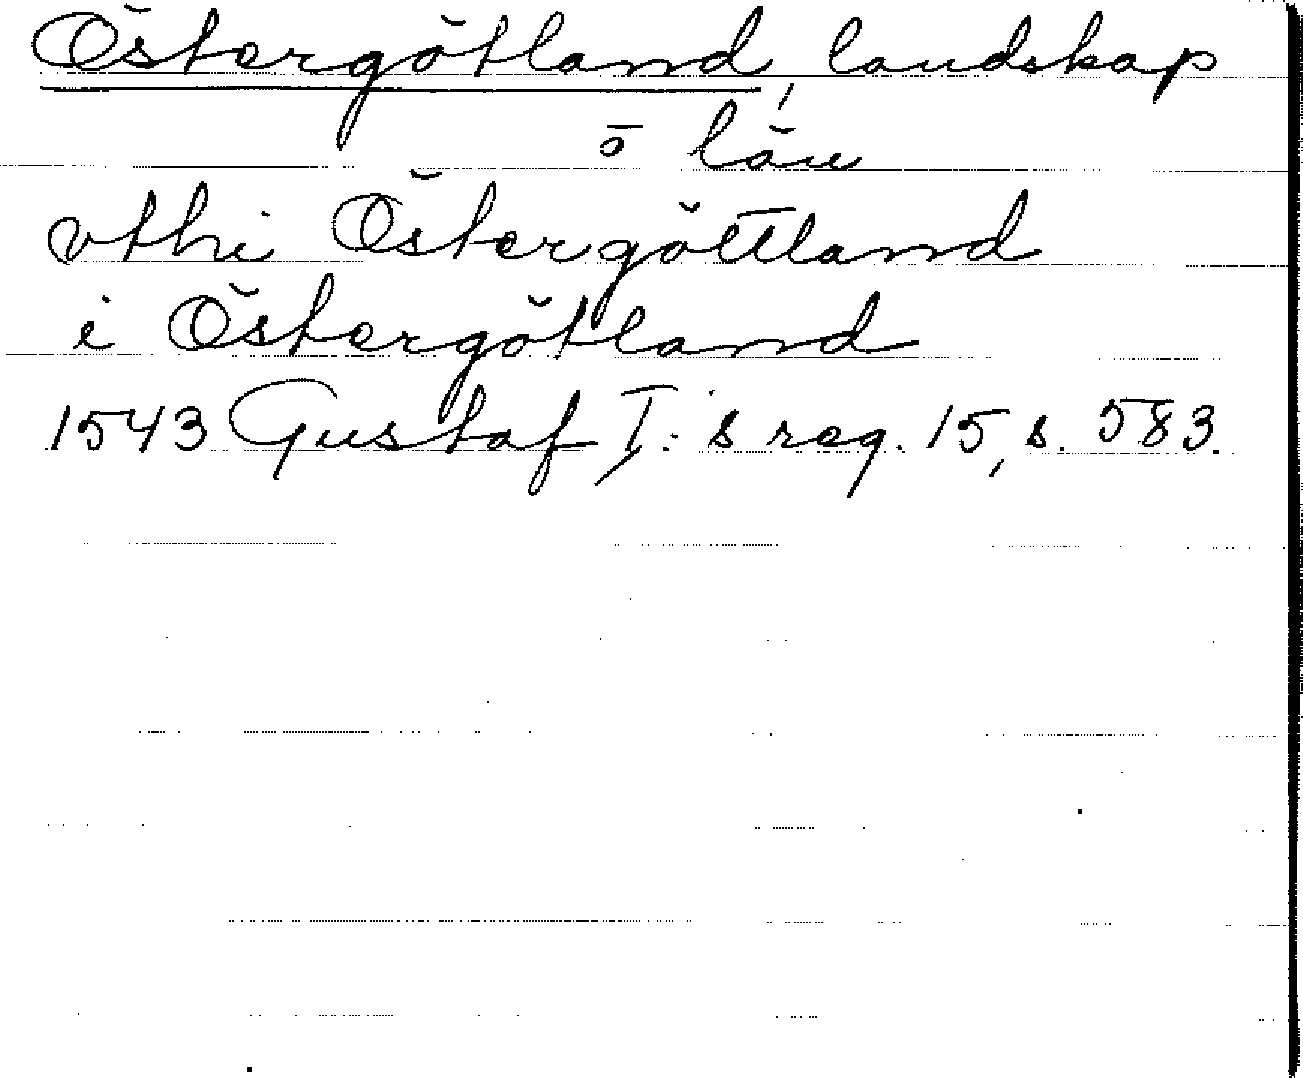 Östergötland, landskap
o län
vthi Östergöttland
i Östergötland
1543 Gustaf I:s reg. 15, s. 583.